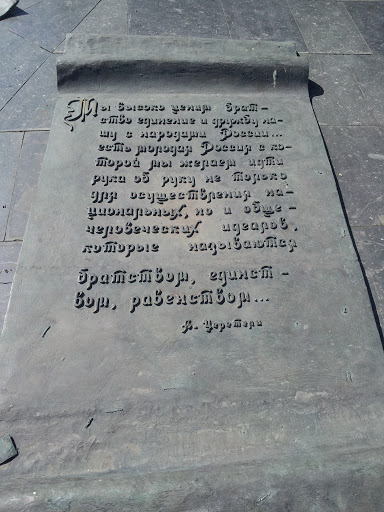 Мы высоко ценим брат-
ство единение и дружбу на-
шу с народами России...
есть молодая Россия с ко-
торой мы желаем идти
рука об руку не только
для осуществления на-
циональных, но и обще-
человеческих идеалов,
которые называются
братством, единст-
вом, равенством...
А. Церетели